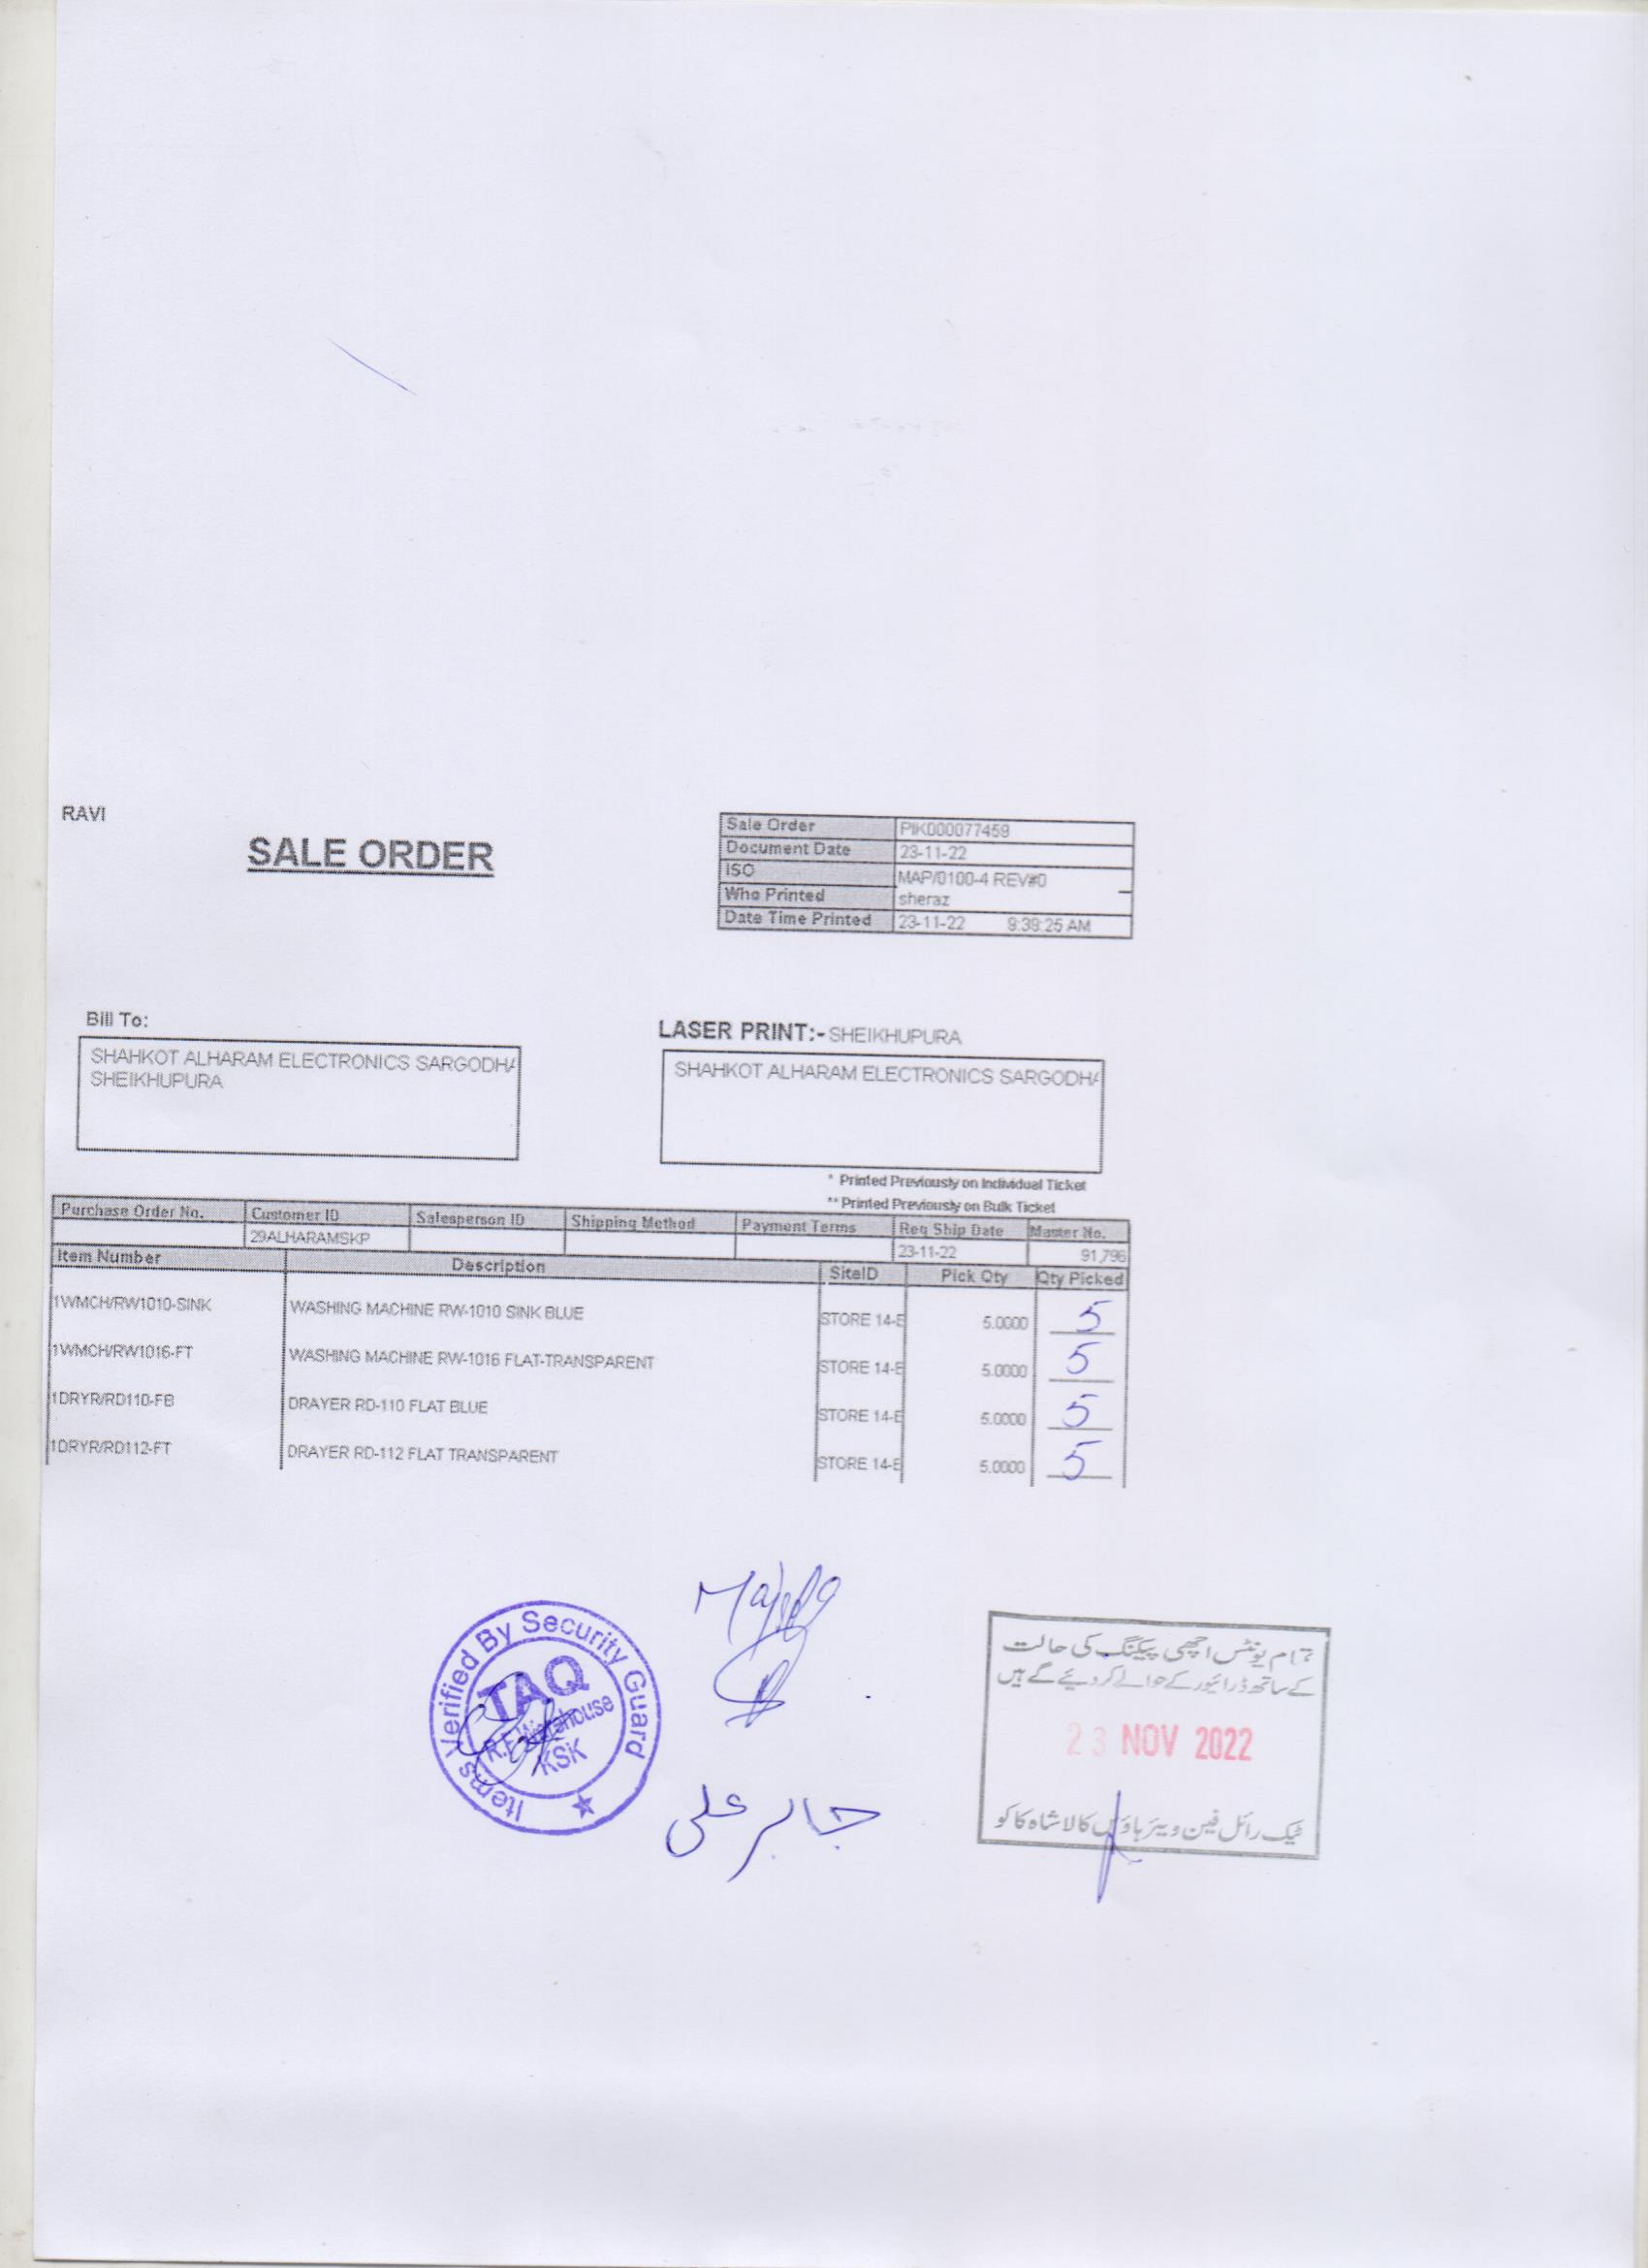 RAVI
SALE ORDER
Sale Order PIK000077459
Document Date 23-11-22
ISO MAP/0100-4 REV#0
Who Printed sheraz
Date Time Printed 23-11-22 9:39:25 AM
Bill To:
SHAHKOT ALHARAM ELECTRONICS SARGODHA
SHEIKHUPURA
LASER PRINT:- SHEIKHUPURA
SHAHKOT ALHARAM ELECTRONICS SARGODHA
* Printed Previously on Individual Ticket
** Printed Previously on Bulk Ticket
Purchase Order No. Customer ID Salesperson ID Shipping Method Payment Terms Req Ship Date Master No.
29ALHARAMSKP 23-11-22 91,796
Item Number Description SiteID Pick Qty Qty Picked
1WMCH/RW1010-SINK WASHING MACHINE RW-1010 SINK BLUE STORE 14-E 5.0000 5
1WMCH/RW1016-FT WASHING MACHINE RW-1016 FLAT-TRANSPARENT STORE 14-E 5.0000 5
1DRYR/RD110-FB DRAYER RD-110 FLAT BLUE STORE 14-E 5.0000 5
1DRYR/RD112-FT DRAYER RD-112 FLAT TRANSPARENT STORE 14-E 5.0000 5
Items Verified By Security Guard
TAQ
R.F Warehouse
KSK
جابر علی
تمام یونٹس اچھی پیکنگ کی حالت
کے ساتھ ڈرائیور کے حوالے کر دیئے گے ہیں
23 NOV 2022
ٹیک رائل فین ویئر ہاؤس کالا شاہ کاکو